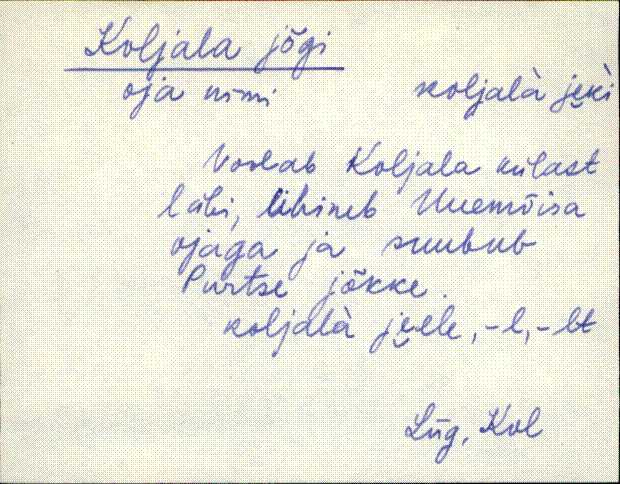 Koljala jõgi
oja nimi koljalà je̮kì
Voolab Koljala külast
läbi, ühineb Uuemõisa
ojaga ja suubub
Purtse jõkke.
koljalà je̮ele, -l, -lt
Lüg, Kol